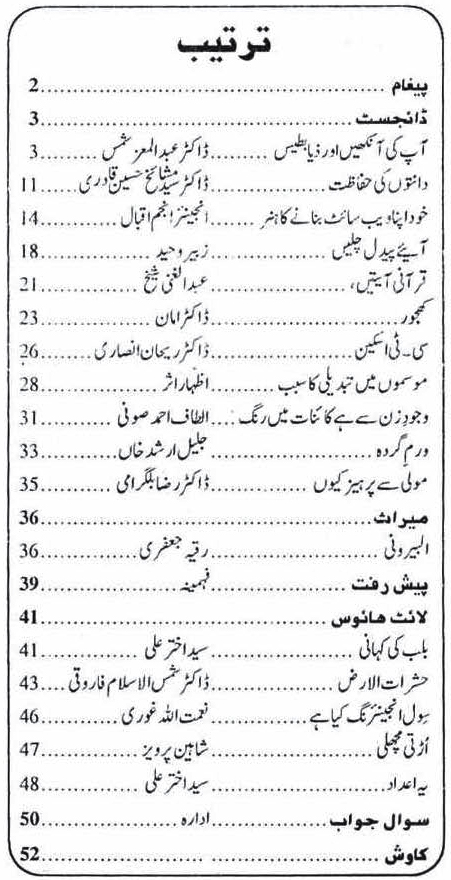 ترتیب
پیغام ........ 2
ڈائجسٹ ........ 3
آپ کی آنکھیں اور ذیابطیس ........ ڈاکٹر عبدالمعز شمس ........ 3
دانتوں کی حفاظت ........ ڈاکٹر سید مشائخ حسین قادری ........ 11
خود اپنا ویب سائٹ بنانے کا ہنر ........ انجینئر انجم اقبال ........ 14
آیئے پیدل چلیں ........ زبیر وحید ........ 18
قرآنی آیتیں، ........ عبدالغنی شیخ ........ 21
کھجور ........ ڈاکٹر امان ........ 23
سی۔ٹی اسکین ........ ڈاکٹر ریحان انصاری ........ 26
موسموں میں تبدیلی کا سبب ........ اظہار اثر ........ 28
وجودِ زن سے ہے کائنات میں رنگ .... الطاف احمد صوفی ........ 31
ورمِ گردہ ........ جلیل ارشد خاں ........ 33
مولی سے پرہیز کیوں ........ ڈاکٹر رضا بلگرامی ........ 35
میراث ........ 36
البیرونی ........ رقیہ جعفری ........ 36
پیش رفت ........ فہمینہ ........ 39
لائٹ ھائوس ........ 41
بلب کی کہانی ........ سید اختر علی ........ 41
حشرات الارض ........ ڈاکٹر شمس الاسلام فاروقی .... 43
سِول انجینئرنگ کیا ہے ........ نعمت اللہ غوری ........ 46
اُڑتی مچھلی ........ شاہین پرویز ........ 47
یہ اعداد ........ سید اختر علی ........ 48
سوال جواب ........ ادارہ ........ 50
کاوش ........ 52